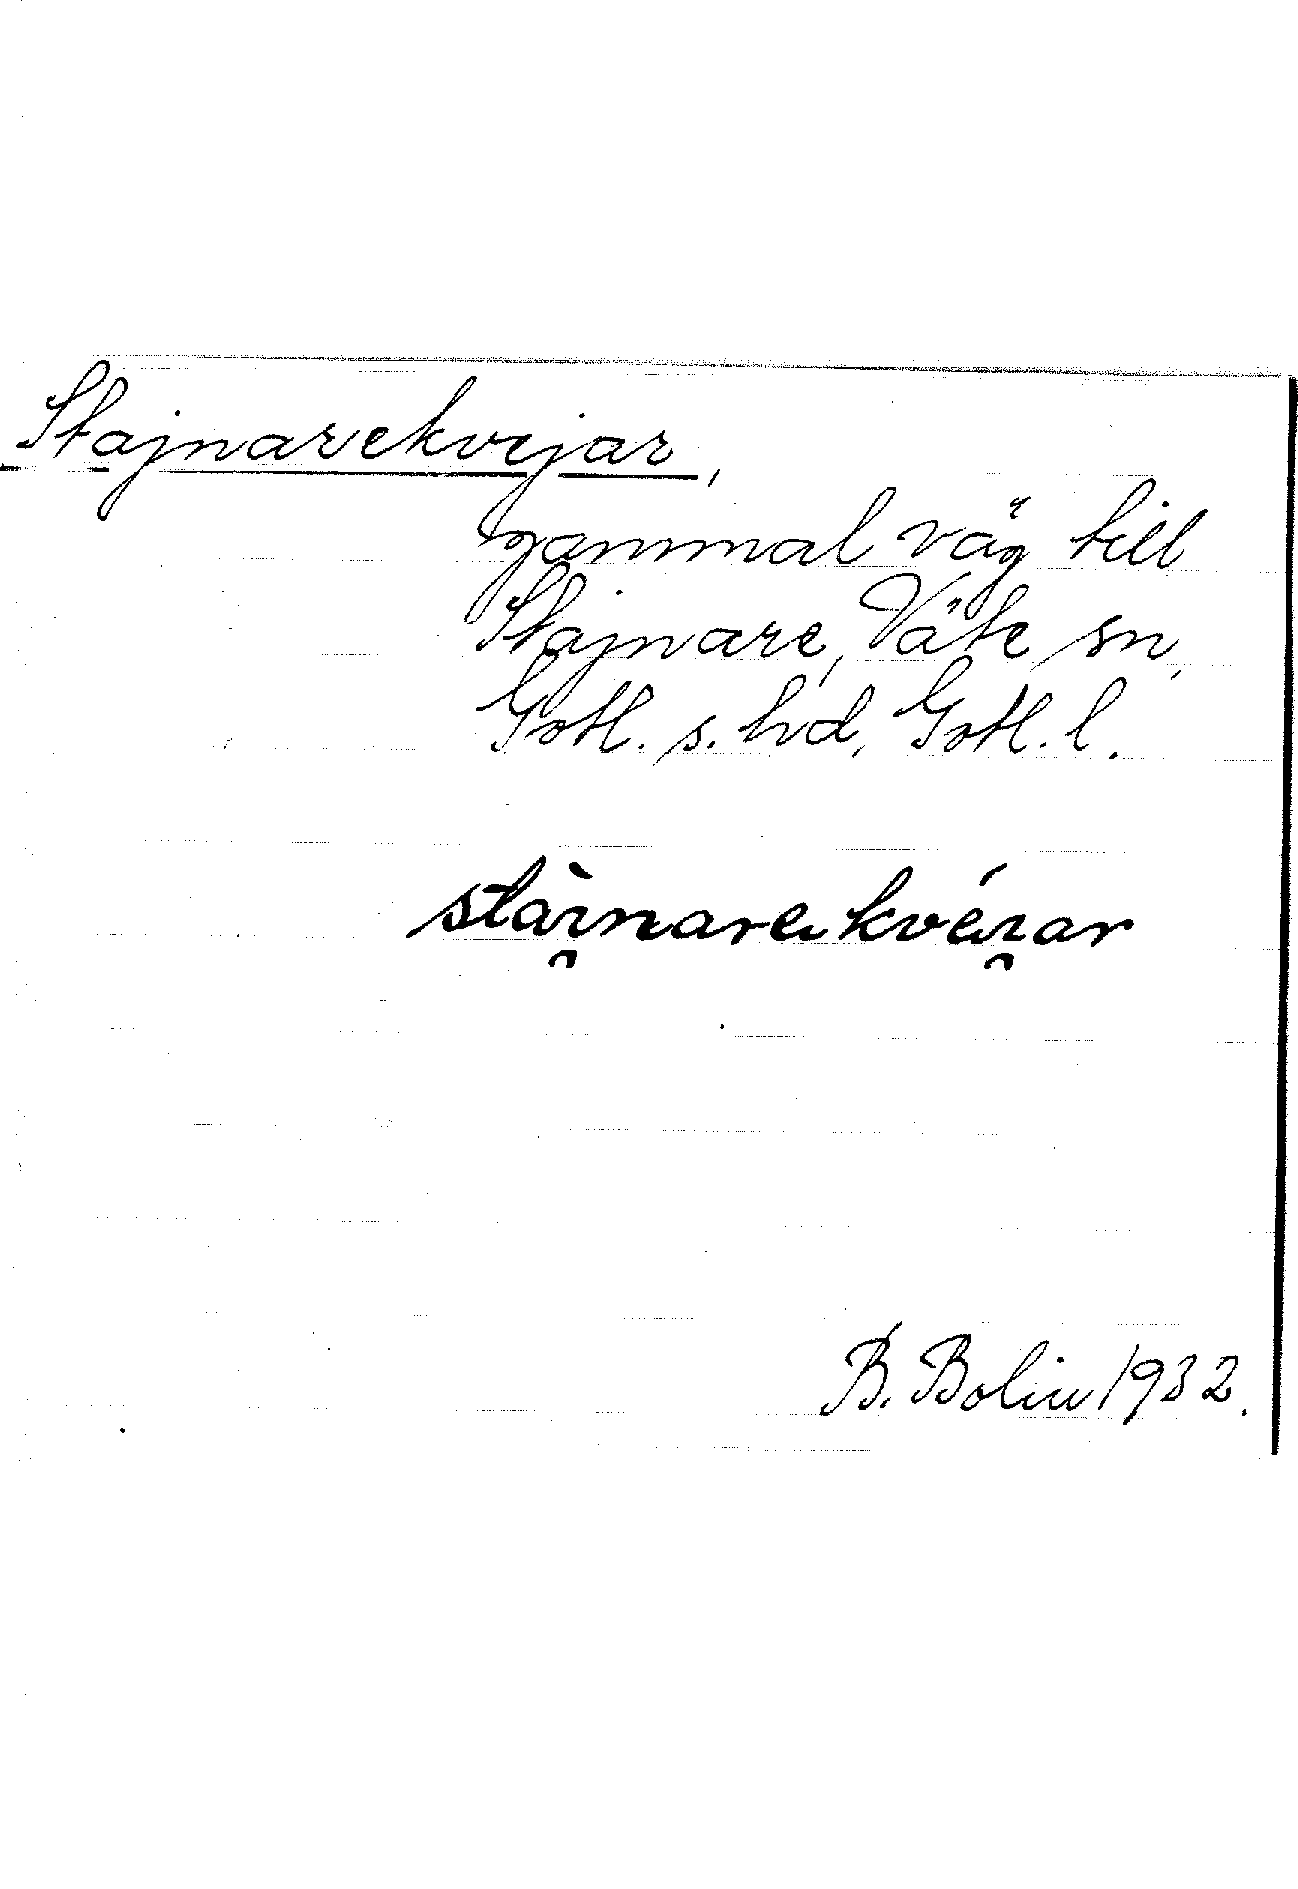 Stajnarekvejar,
gammal väg till
Stajnare, Väte sn,
Gotl. s. hd, Gotl. l.
stàı̯narekvéı̯ar
B. Bolin 1932.